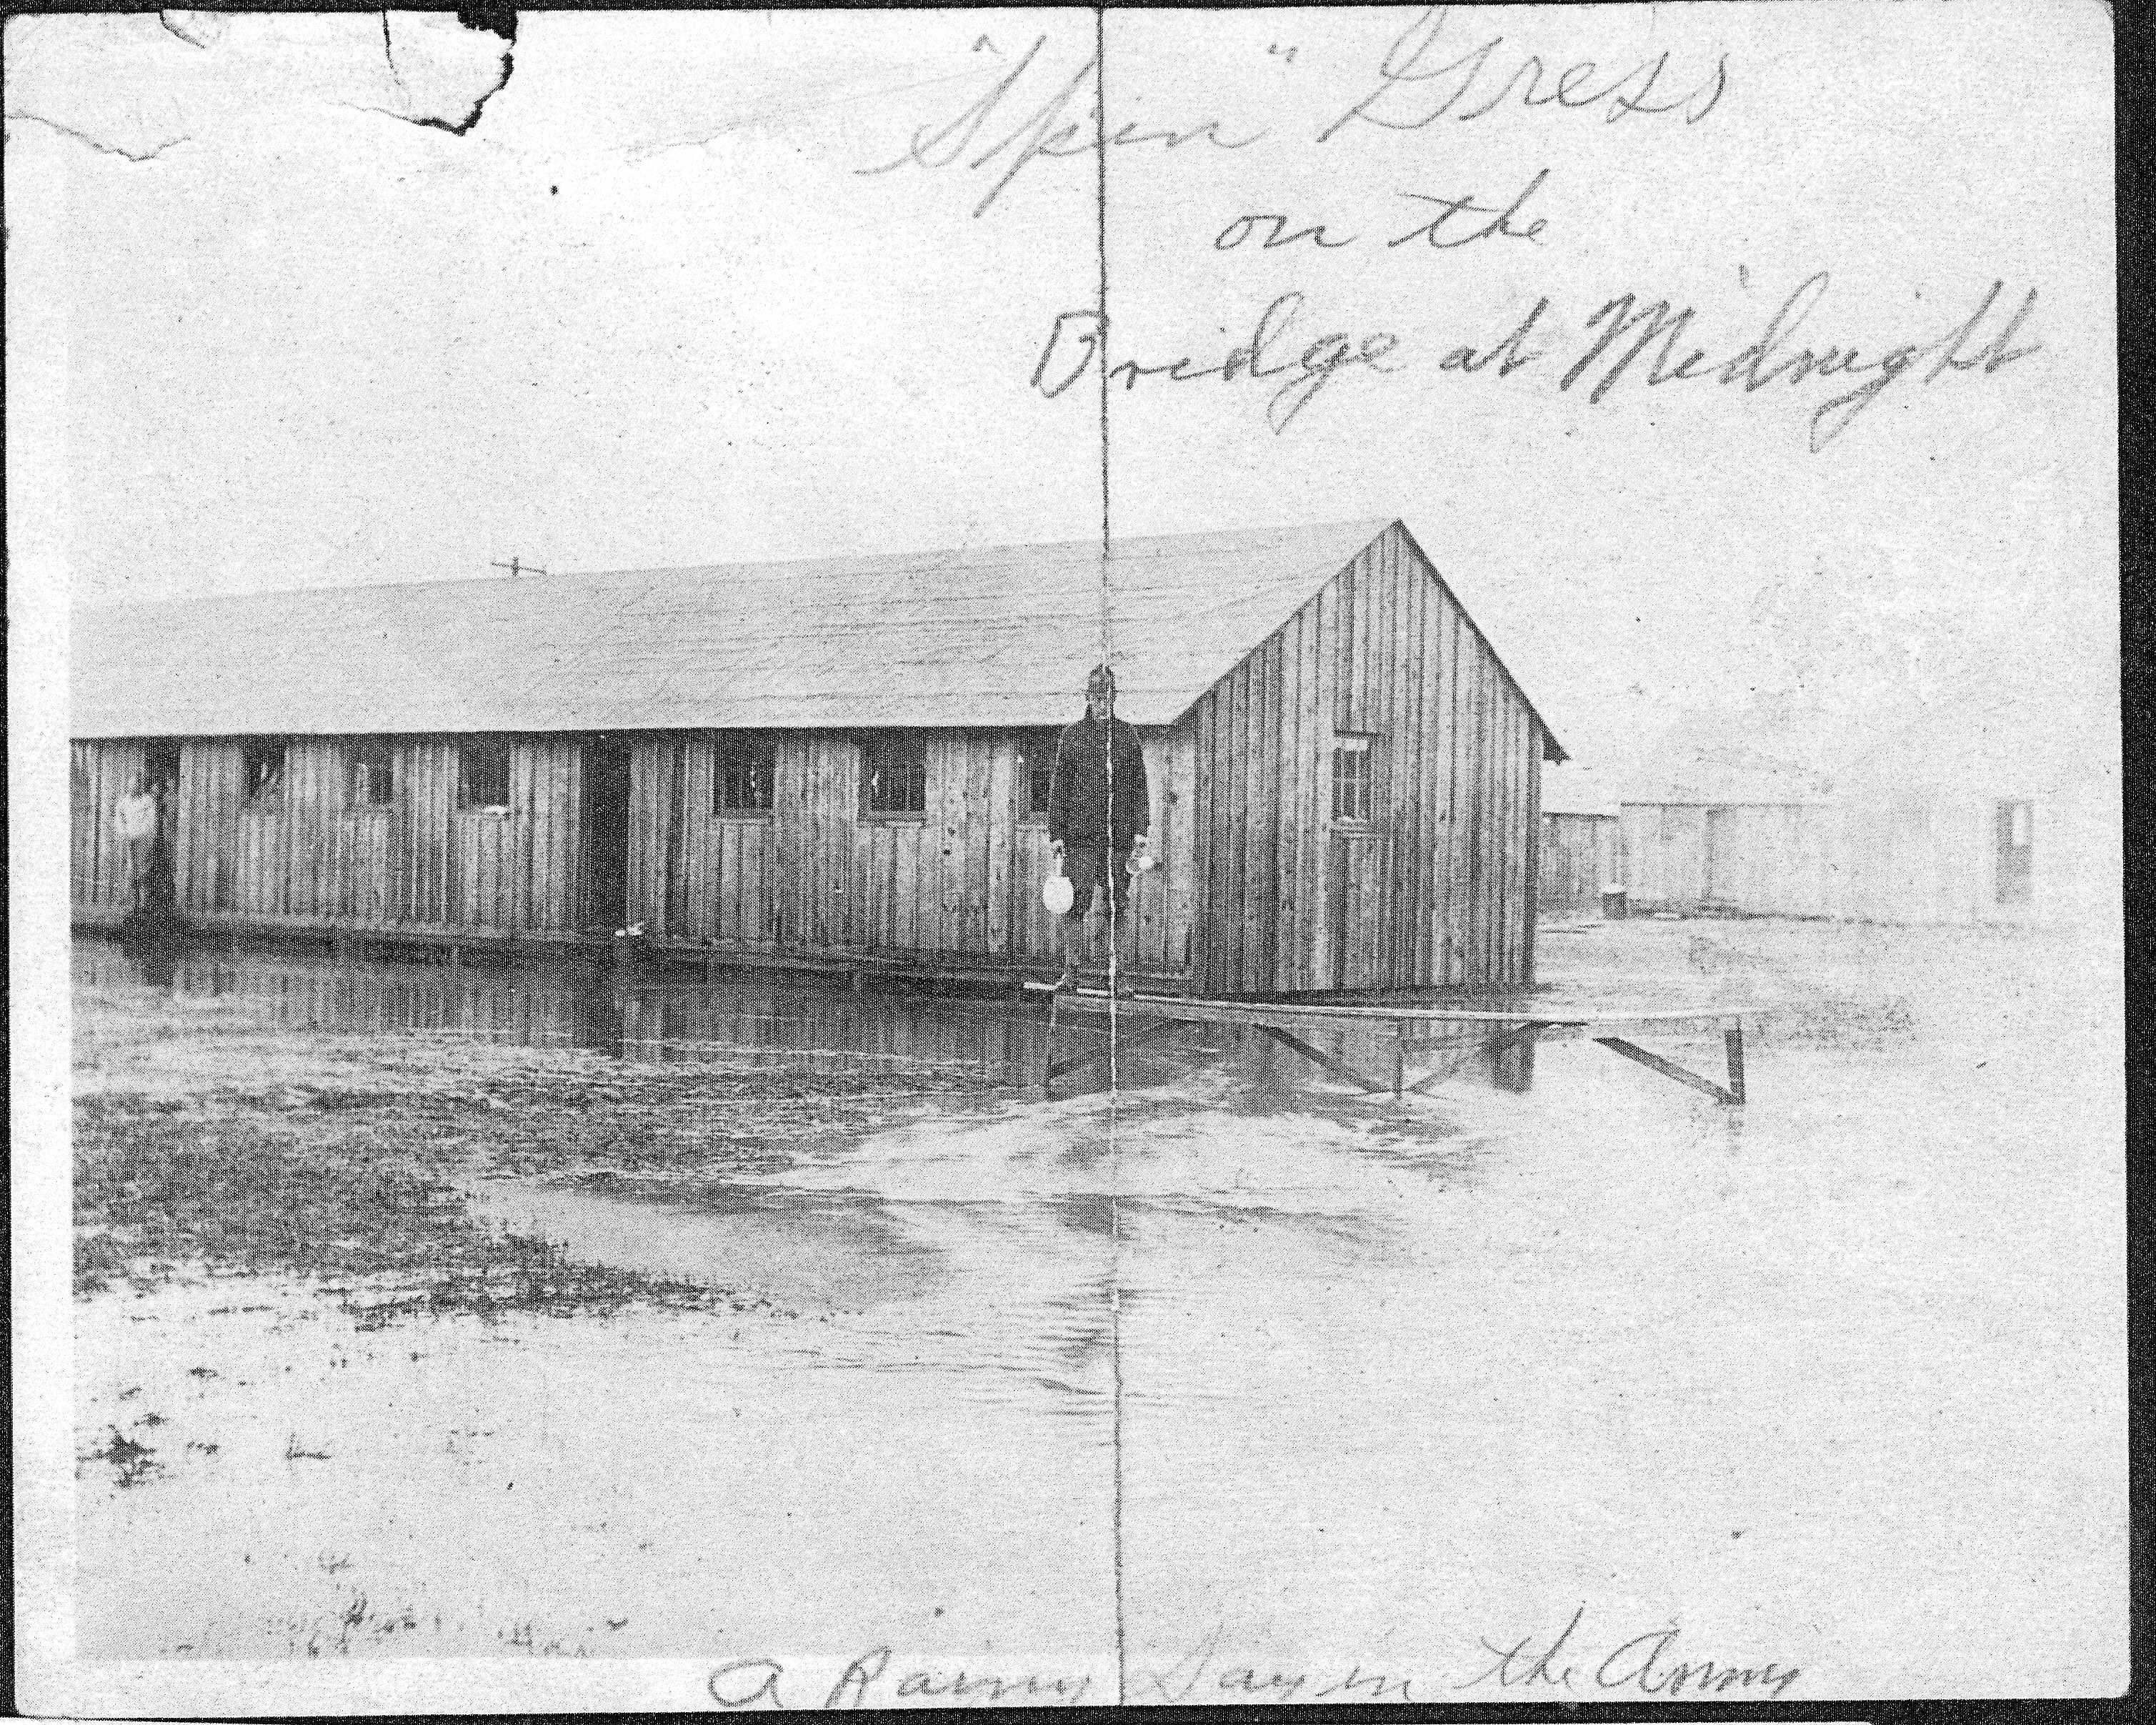 "Spin" Gress
on the
Bridge at Midnight
a Rainy Day in the Army